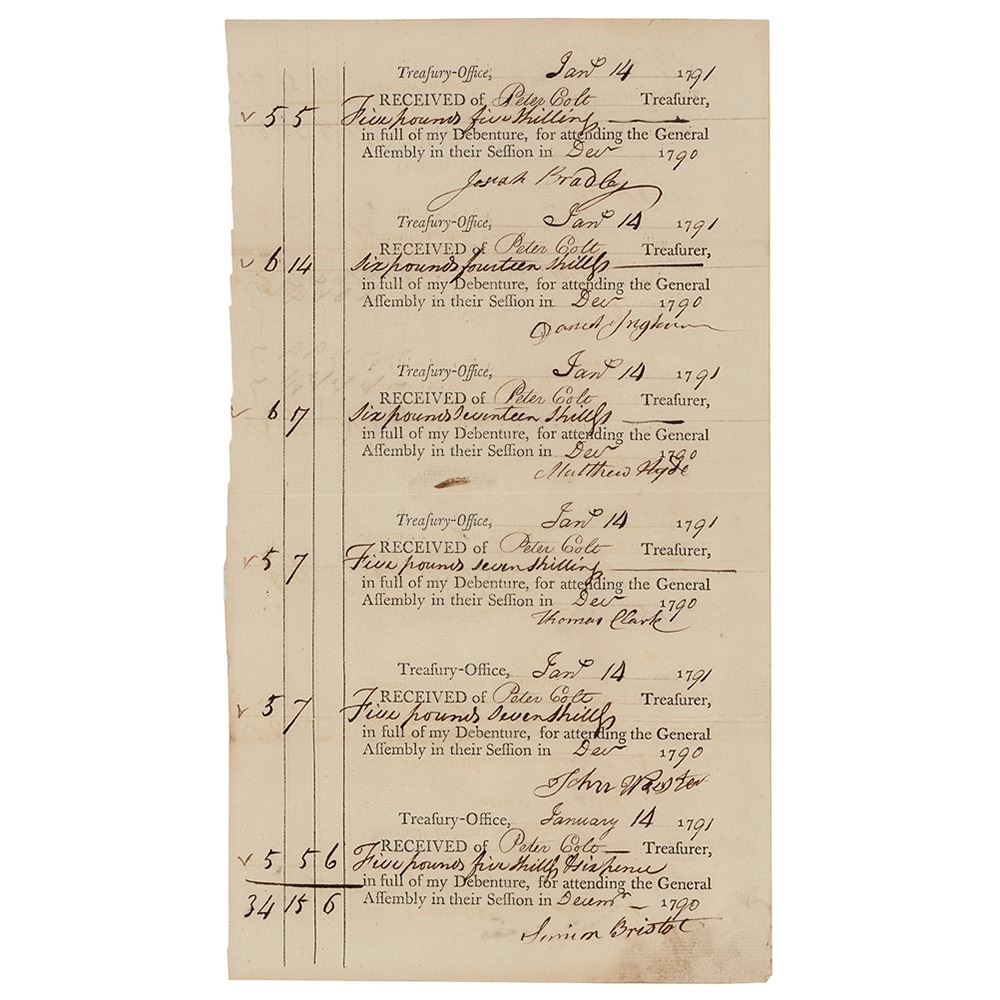 Treaſury-Office, Janʸ 14 1791
RECEIVED of Peter Colt Treaſurer,
v 5 5 Five pounds five shilling
in full of my Debenture, for attending the General
Aſſembly in their Seſſion in Decʳ 1790
Josiah Bradley
Treaſury-Office, Janʸ 14 1791
RECEIVED of Peter Colt Treaſurer,
v 6 14 six pounds fourteen shillgs
in full of my Debenture, for attending the General
Aſſembly in their Seſſion in Decʳ 1790
Daniel Ingham
Treaſury-Office, Janʸ 14 1791
RECEIVED of Peter Colt Treaſurer,
v 6 17 six pounds seventeen shillgs
in full of my Debenture, for attending the General
Aſſembly in their Seſſion in Decʳ 1790
Matthew Hyde
Treaſury-Office, Janʸ 14 1791
RECEIVED of Peter Colt Treaſurer,
v 5 7 Five pounds seven shilling
in full of my Debenture, for attending the General
Aſſembly in their Seſſion in Decʳ 1790
Thomas Clark
Treaſury-Office, Janʸ 14 1791
RECEIVED of Peter Colt Treaſurer,
v 5 7 Five pounds seven shillgs
in full of my Debenture, for attending the General
Aſſembly in their Seſſion in Decʳ 1790
John Webster
Treaſury-Office, January 14 1791
RECEIVED of Peter Colt Treaſurer,
v 5 5 6 Five pounds five shillgs & sixpence
in full of my Debenture, for attending the General
34 15 6 Aſſembly in their Seſſion in Decemʳ 1790
Simion Bristol